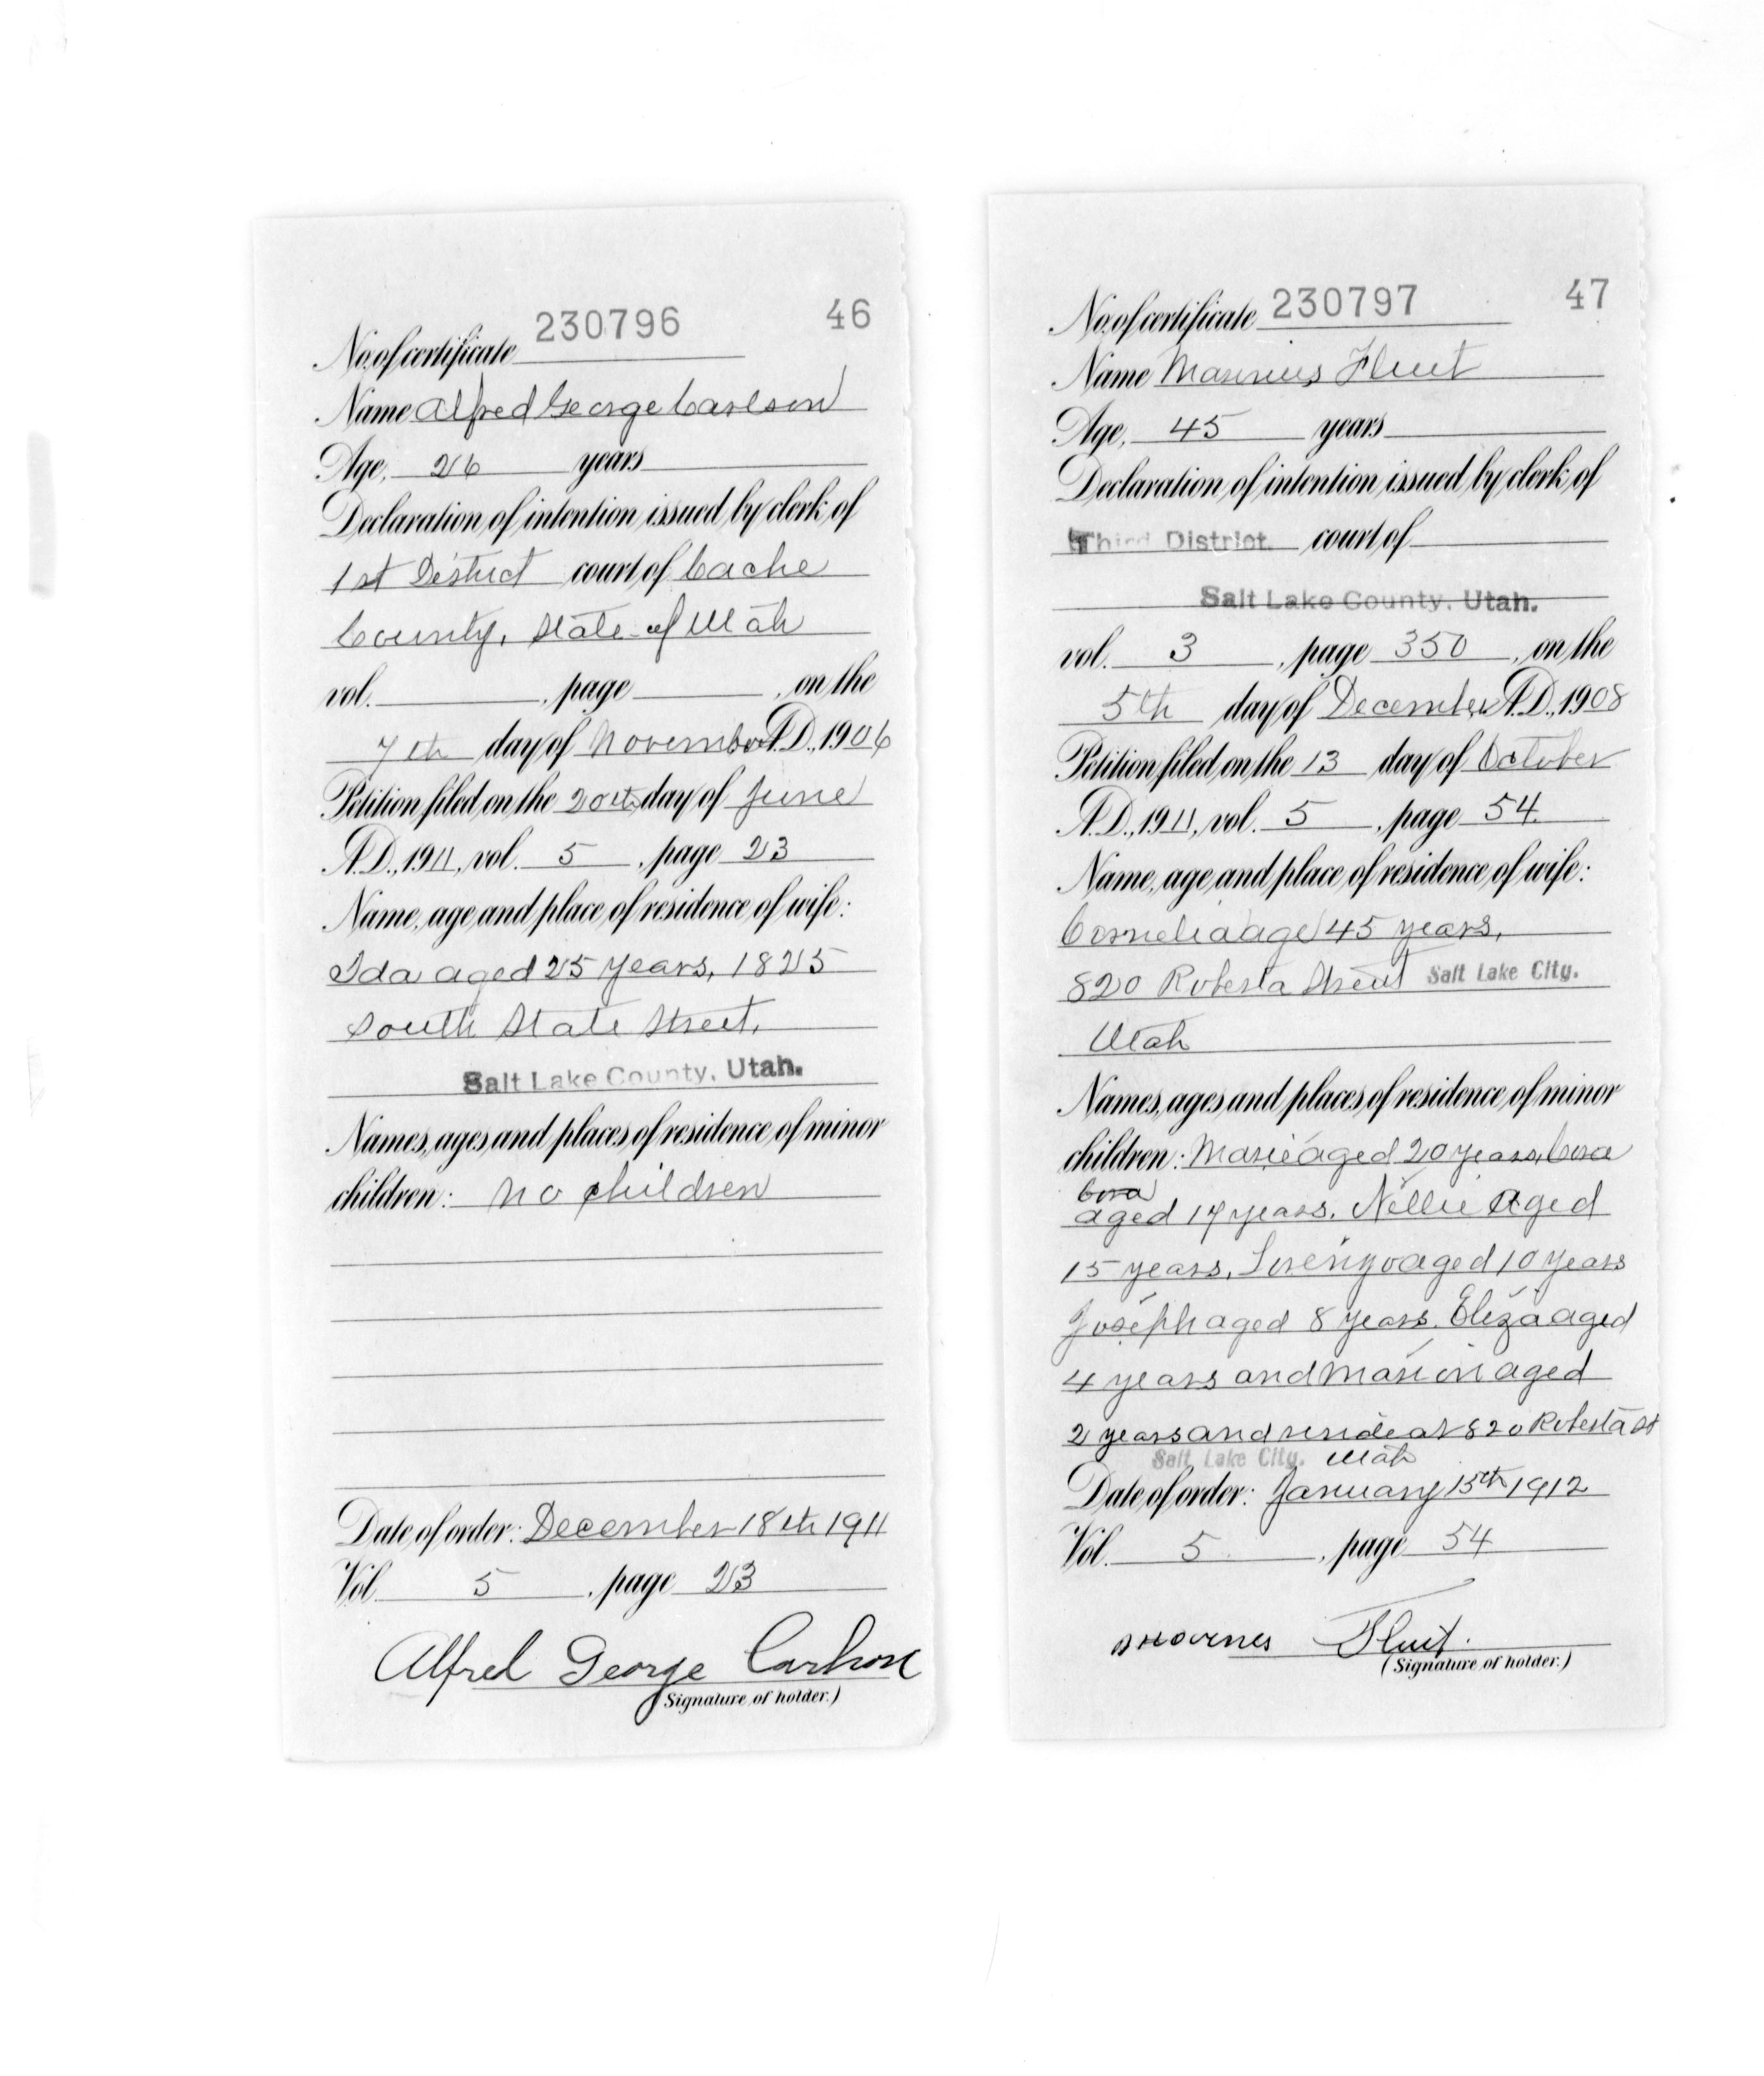 230796 46
No. of certificate
Name Alfred George Carlson
Age, 26 years
Declaration of intention issued by clerk of
1st District court of Cache
County, State of Utah
vol. , page , on the
7th day of November A.D., 1906
Petition filed on the 20th day of June
A.D., 1911, vol. 5, page 23
Name, age and place of residence of wife:
Ida aged 25 years, 1825
South State Street,
Salt Lake County, Utah.
Names, ages and places of residence of minor
children: No children
Date of order: December 18th 1911
Vol. 5, page 23
Alfred George Carlson
(Signature of holder.)
No. of certificate 230797 47
Name Marinus Fluit
Age, 45 years
Declaration of intention issued by clerk of
Third District court of
Salt Lake County, Utah.
vol. 3, page 350, on the
5th day of December A.D., 1908
Petition filed on the 13 day of October
A.D., 1911, vol. 5, page 54.
Name, age and place of residence of wife:
Cornelia age 45 years,
820 Roberta Street Salt Lake City.
Utah
Names, ages and places of residence of minor
children: Marie aged 20 years, Cora
Cora
aged 17 years, Nellie aged
15 years, Lorenzo aged 10 years
Joseph aged 8 years. Eliza aged
4 years and Marion aged
2 years and reside at 820 Roberta St
Salt Lake City. Utah
Date of order: January 15th 1912
Vol. 5, page 54
Fluit.
(Signature of holder.)